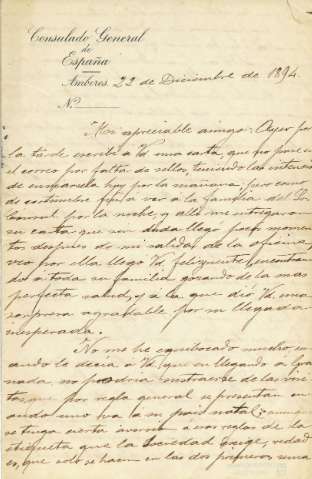 Consulado General
de
España
Amberes 22 de Diciembre de 1894
N.º
Mi apreciable amigo: Ayer por
la tarde escribí á Vd. una carta, que no puse en
el correo por falta de sellos, teniendo la intención
de enviarsela hoy por la mañana, pero como
de costumbre fui a ver a la familia del
Consul por la noche, y alli me entregaron
su carta que sin duda llegó pocos momen
tos despues de mi salida de la oficina,
veo por ella llegó Vd. felizmente encontran
do á toda su familia gozando de la mas
perfecta salud, y á la que dió Vd. una
sorpresa agradable por su llegada
inesperada.
No me he equivocado mucho, cu
ando le decia á Vd. que en llegando á Gra
nada, no podria sustraerse de las visi
tas, que por regla general se presentan cu
ando uno va a su pais natal, aunque
se tenga cierta aversión á esas reglas de la
etiqueta que la Sociedad exige, verdad
es, que solo se hacen en las dos primeras sema